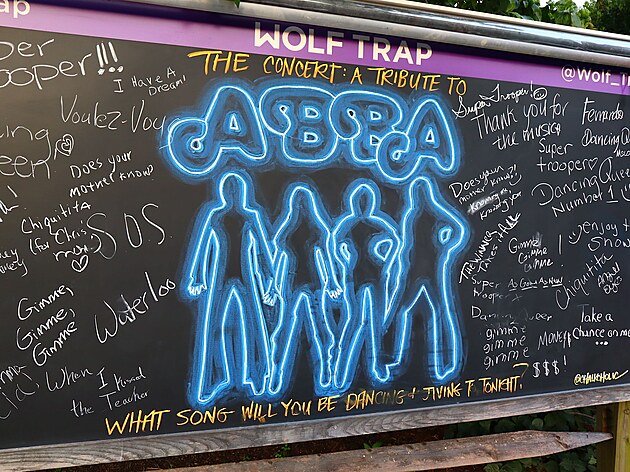 WOLF TRAP
@Wolf_Tr
THE CONCERT: A TRIBUTE TO
ABBA
per
ooper!!!
I Have A
Dream!
Voulez-Vou
Does your
mother know
Chiquitita
(for Chris
S.O.S.
Gimme,
Gimme,
Gimme
Waterloo
When I Kissed
the Teacher
Super Trooper!
Thank you for
the music
Super
trooper
Fernando
Dancing Que
Dancing Queen
Number 1
Does your
mother know?!
Knowing me,
knowing you
THE WINNER
TAKES IT ALL
Gimme
Gimme
Gimme
enjoy t
Show
Super
trooper
As Good As New
Chiquitita
Dancing Queer
gimme
gimme
gimme
MONEY
$$$$!
Take a
chance on me
WHAT SONG WILL YOU BE DANCING + JIVING TO TONIGHT?
@CHALKOHOLIC